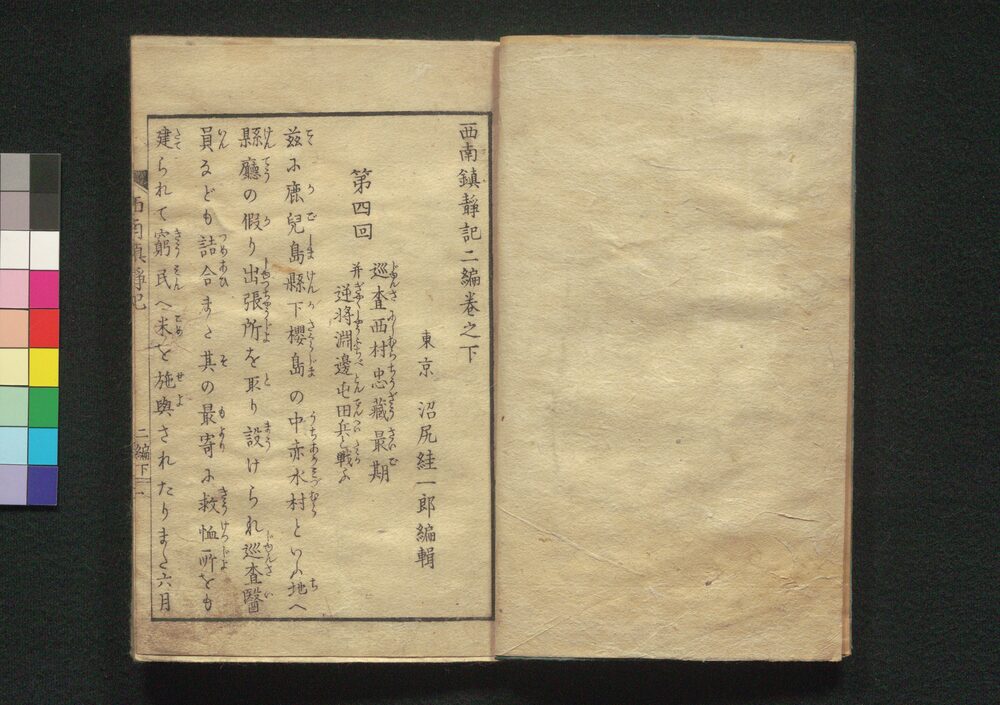 西南鎮靜記二編卷之下
東京 沼尻絓一郎編輯
第四回
巡査西村忠藏最期
并逆將淵邊屯田兵と戰ふ
茲に鹿兒島縣下櫻島の中赤水村といふ地へ
縣廳の假り出張所を取り設けられ巡査醫
員なども詰合また其の最寄に救恤所をも
建られて窮民へ米を施與されたりまた六月
西南鎮靜記
二編下
一